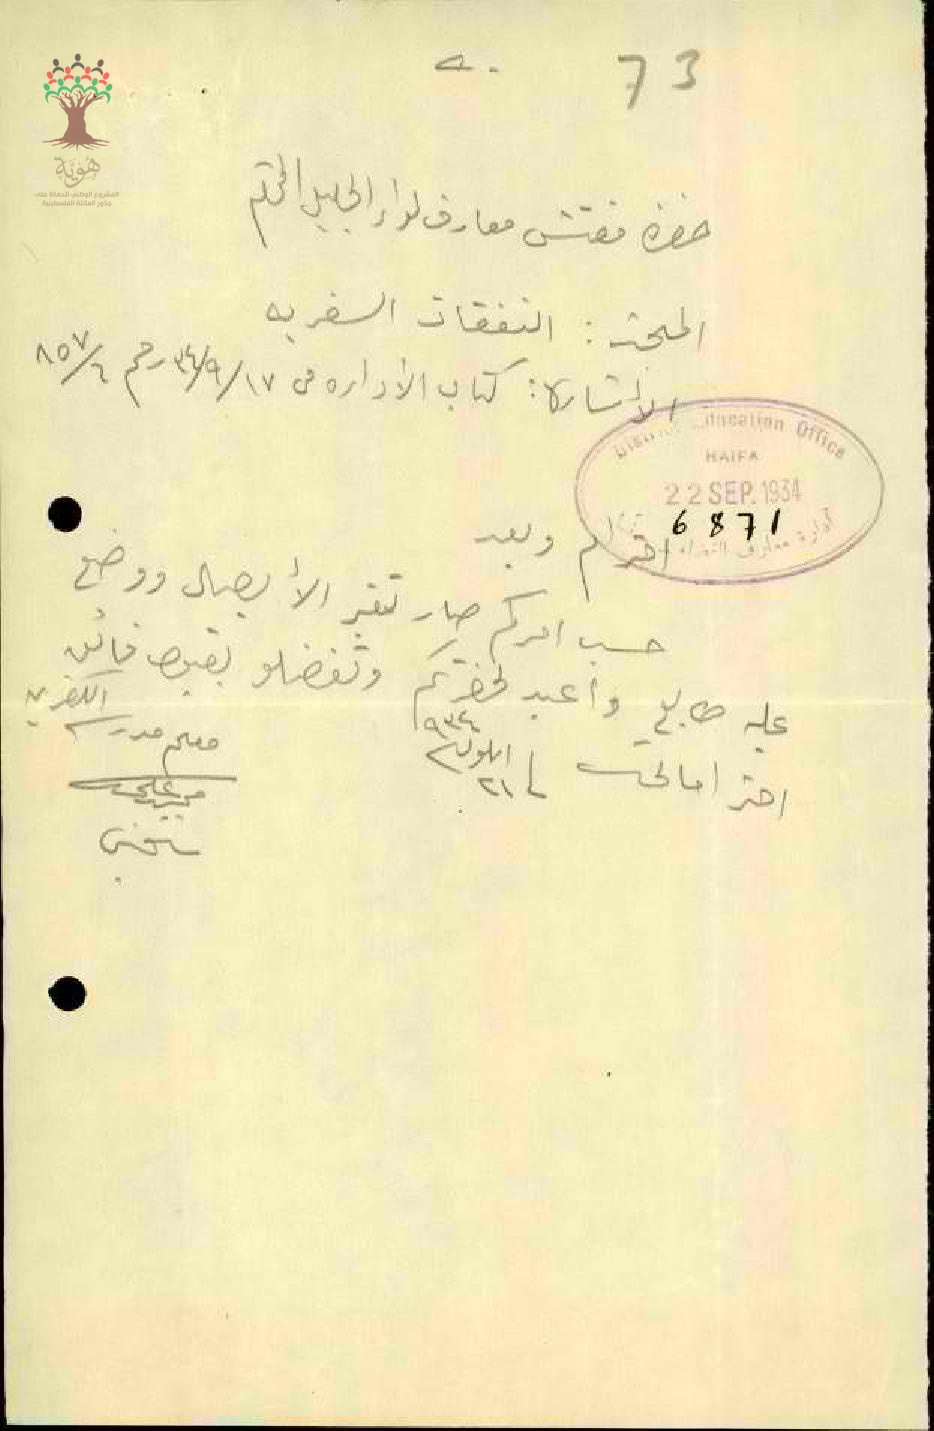 73
هُوِيَّة
المشروع الوطني للحفاظ على
جذور العائلة الفلسطينية
حضرة مفتش معارف لواء الجليل المحترم
المبحث : النفقات السفريه
الاشارة : كتاب الاداره في ١٧/٩/٣٤ رقم ٨٥٧/٤
District Education Office
HAIFA
22 SEP. 1934
6871
ادارة معارف
احترام وبعد
حسب امركم صار تغير الأيصال ووضع
عليه طابع وأعيد لحضرتكم وتفضلو بقبول فائق
احتراماتي
٢١ ايلول ٩٣٤
معلم مدرسة